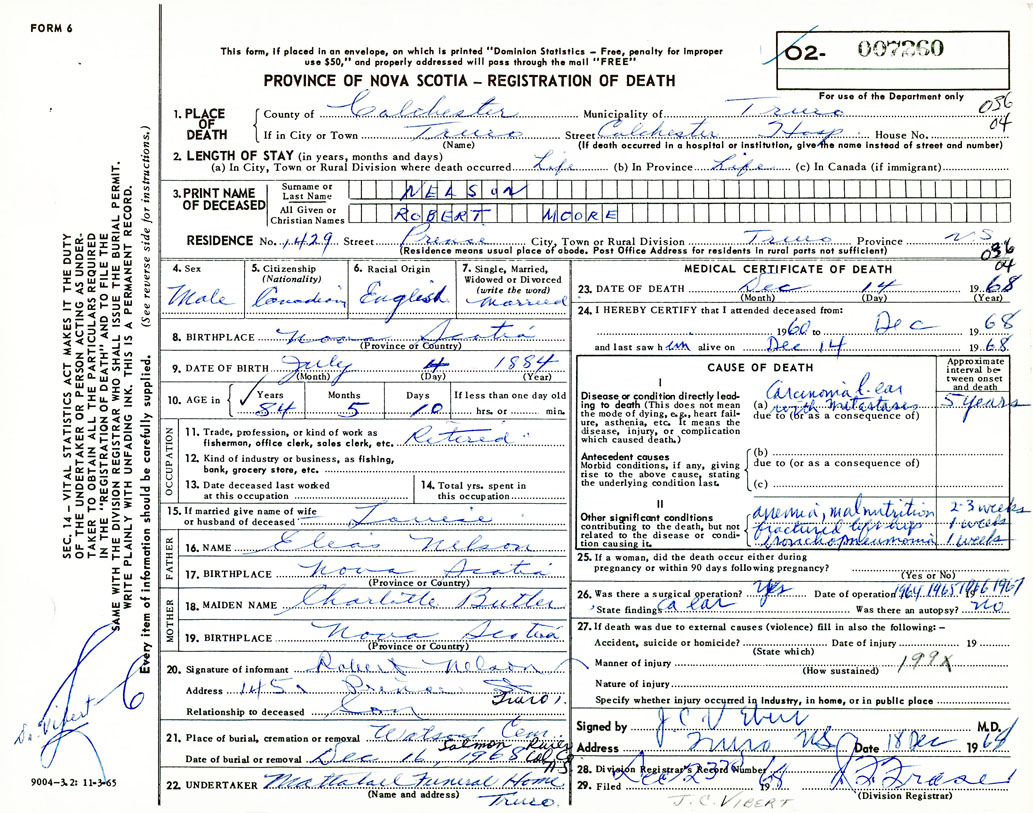 FORM 6
This form, if placed in an envelope, on which is printed "Dominion Statistics – Free, penalty for improper
use $50," and properly addressed will pass through the mail "FREE"
02- 007260
PROVINCE OF NOVA SCOTIA – REGISTRATION OF DEATH
For use of the Department only
036
04
1. PLACE OF DEATH
County of Colchester Municipality of Truro
If in City or Town Truro Street Colchester Hosp House No.
(Name) (If death occurred in a hospital or institution, give the name instead of street and number)
2. LENGTH OF STAY (in years, months and days)
(a) In City, Town or Rural Division where death occurred Life (b) In Province Life (c) In Canada (if immigrant)
3. PRINT NAME OF DECEASED
Surname or Last Name NELSON
All Given or Christian Names ROBERT MOORE
RESIDENCE No. 1429 Street Prince City, Town or Rural Division Truro Province N.S
(Residence means usual place of abode. Post Office Address for residents in rural parts not sufficient)
036
04
4. Sex
Male
5. Citizenship
(Nationality)
Canadian
6. Racial Origin
English
7. Single, Married,
Widowed or Divorced
(write the word)
Married
8. BIRTHPLACE Nova Scotia
(Province or Country)
9. DATE OF BIRTH July 4 1884
(Month) (Day) (Year)
10. AGE in Years Months Days If less than one day old
84 5 10 hrs. or min.
OCCUPATION
11. Trade, profession, or kind of work as
fisherman, office clerk, sales clerk, etc. Retired
12. Kind of industry or business, as fishing,
bank, grocery store, etc.
13. Date deceased last worked
at this occupation
14. Total yrs. spent in
this occupation
15. If married give name of wife
or husband of deceased Louise
FATHER
16. NAME Elias Nelson
17. BIRTHPLACE Nova Scotia
(Province or Country)
MOTHER
18. MAIDEN NAME Charlotte Butler
19. BIRTHPLACE Nova Scotia
(Province or Country)
20. Signature of informant Robert Nelson
Address 145 Prince St Truro
Relationship to deceased Son
21. Place of burial, cremation or removal Watson Cem.
Salmon River
Col. Co.
N.S.
Date of burial or removal Dec 16, 1968
22. UNDERTAKER Mattatall Funeral Home
(Name and address) Truro.
MEDICAL CERTIFICATE OF DEATH
23. DATE OF DEATH Dec 14 1968
(Month) (Day) (Year)
24. I HEREBY CERTIFY that I attended deceased from:
1960 to Dec 1968
and last saw him alive on Dec 14 1968
CAUSE OF DEATH
Approximate
interval be-
tween onset
and death
I
Disease or condition directly lead-
ing to death (This does not
mean the mode of dying, e.g., heart fail-
ure, asthenia, etc. It means the
disease, injury, or complication
which caused death.)
(a) Carcinoma L ear
with metastases 5 years
due to (or as a consequence of)
Antecedent causes
Morbid conditions, if any, giving
rise to the above cause, stating
the underlying condition last.
(b)
due to (or as a consequence of)
(c)
II
Other significant conditions
contributing to the death, but not
related to the disease or condi-
tion causing it.
anemia, malnutrition 2-3 weeks
fractured left hip 1 week
bronchopneumonia 1 weeks
25. If a woman, did the death occur either during
pregnancy or within 90 days following pregnancy?
(Yes or No)
26. Was there a surgical operation? yes Date of operation 1964 1965 1966 1967 19
State findings Ca ear Was there an autopsy? no
27. If death was due to external causes (violence) fill in also the following: –
Accident, suicide or homicide? Date of injury 19
(State which)
Manner of injury 199X
(How sustained)
Nature of injury
Specify whether injury occurred in Industry, in home, or in public place
Signed by J C Vibert M.D.
Address Truro NS Date 18 Dec 1968
28. Division Registrar's Record Number
29. Filed 19
(Division Registrar)
J.C. VIBERT
SEC. 14 – VITAL STATISTICS ACT MAKES IT THE DUTY
OF THE UNDERTAKER OR PERSON ACTING AS UNDER-
TAKER TO OBTAIN ALL THE PARTICULARS REQUIRED
IN THE "REGISTRATION OF DEATH" AND TO FILE THE
SAME WITH THE DIVISION REGISTRAR WHO SHALL ISSUE THE BURIAL PERMIT.
WRITE PLAINLY WITH UNFADING INK. THIS IS A PERMANENT RECORD.
Every item of information should be carefully supplied. (See reverse side for instructions.)
Dr. Vibert
9004–3.2: 11-3-65